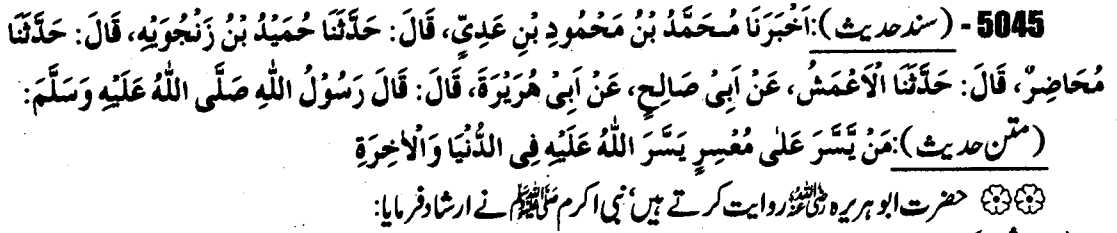 5045 - (سند حدیث): اَخْبَرَنَا مُحَمَّدُ بْنُ مَحْمُودِ بْنِ عَدِيٍّ، قَالَ: حَدَّثَنَا حُمَيْدُ بْنُ زَنْجُوَيْهِ، قَالَ: حَدَّثَنَا
مُحَاضِرٌ، قَالَ: حَدَّثَنَا الْاَعْمَشُ، عَنْ اَبِىْ صَالِحٍ، عَنْ اَبِىْ هُرَيْرَةَ، قَالَ: قَالَ رَسُوْلُ اللّٰهِ صَلَّى اللّٰهُ عَلَيْهِ وَسَلَّمَ:
(متن حدیث): مَنْ يَّسَّرَ عَلٰى مُعْسِرٍ يَسَّرَ اللّٰهُ عَلَيْهِ فِى الدُّنْيَا وَالْاٰخِرَةِ
حضرت ابو ہریرہ رضی اللہ عنہ روایت کرتے ہیں، نبی اکرم صلی اللہ علیہ وسلم نے ارشاد فرمایا: